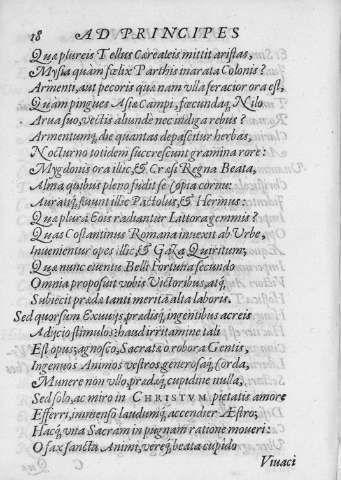 18 AD PRINCIPES
Quæ plureis Tellus Cereateis mittit aristas,
Mysia quàm fœlix Parthis inarata Colonis?
Armenti, aut pecoris quà nam vlla feracior ora est,
Quàm pingues Asiæ Campi, fœcundaq, Nilo
Arua suo, vectis aliunde nec indiga rebus?
Armentumq, die quantas depascitur herbas,
Nocturno totidem succrescunt gramina rore:
Mygdonis ora illic, & Crœsi Regna Beata,
Alma quibus pleno fudit se Copia cornu:
Auratiq, fluunt illic Pactolus, & Hermus:
Quæ plura? Eois radiantur Littora gemmis?
Quas Costantinus Romana inuexit ab Vrbe,
Inuenientur opes illic, & Gaza Quiritum;
Quæ nunc euentu Belli Fortuna secundo
Omnia proposuit vobis Victoribus, atq,
Subiecit præda tanti merità alta laboris.
Sed quorsum Exuuijs, prædiq, ingentibus acreis
Adijcio stimulos? haud irritamine tali
Est opus, agnosco, Sacratæ o robora Gentis,
Ingenuos Animos vestros, generosaq, Corda,
Munere non vllo, prædæq, cupidine nulla,
Sed solo, ac miro in CHRISTVM pietatis amore
Efferri, immenso laudumq, accendier Æstro;
Hacq, vna Sacram in pugnam ratione moueri:
O fax sancta Animi, vereq, beata cupido
Viuaci